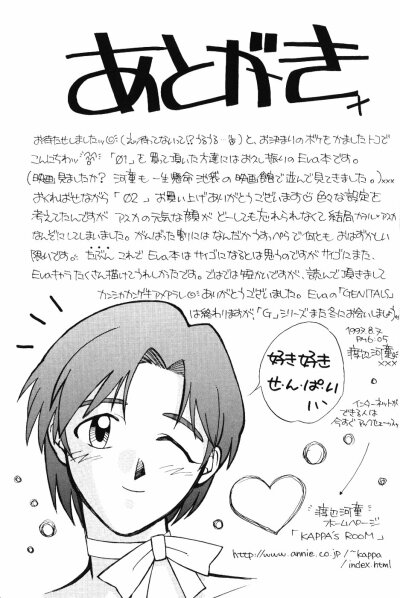 あとがき
お待たせしましたッ(え?待ってないって?うるうる…)と、お決まりのボケをかましたトコで
こんにちわッ 「01」を買って頂いた方達にはお久し振りのEva本です。
(映画見ましたか? 河童も一生懸命池袋の映画館で並んで見てきました。)xxx
おくればせながら「02」お買い上げありがとうございます 色々な設定を
考えてたんですが アスカの元気な顔が どーしても忘れられなくて 結局
なんぞにしてしまいました。がんばった割にはなんだかうすっぺらで何とも おはずかしい
限りです たぶん これで Eva本は サイゴになるとは思うのですが サイゴにまた、
Evaキャラたくさん描けてうれしかたです。ではでは短かいですが、読んで頂きまして
カンシャカンゲキアメアラレ ありがとうございました。Evaの「GENITALS」
は終わりますが、「G」シリーズでまた皆にお会いしましょう
1997.8.7
PM6:05
渡辺河童
xxx
好き好き
せ・ん・ぱ・い
インターネットが
できる人は
今すぐアクセス
渡辺河童
ホームページ
「KAPPA's ROOM」
http://www.annie.co.jp/~kappa
/index.html